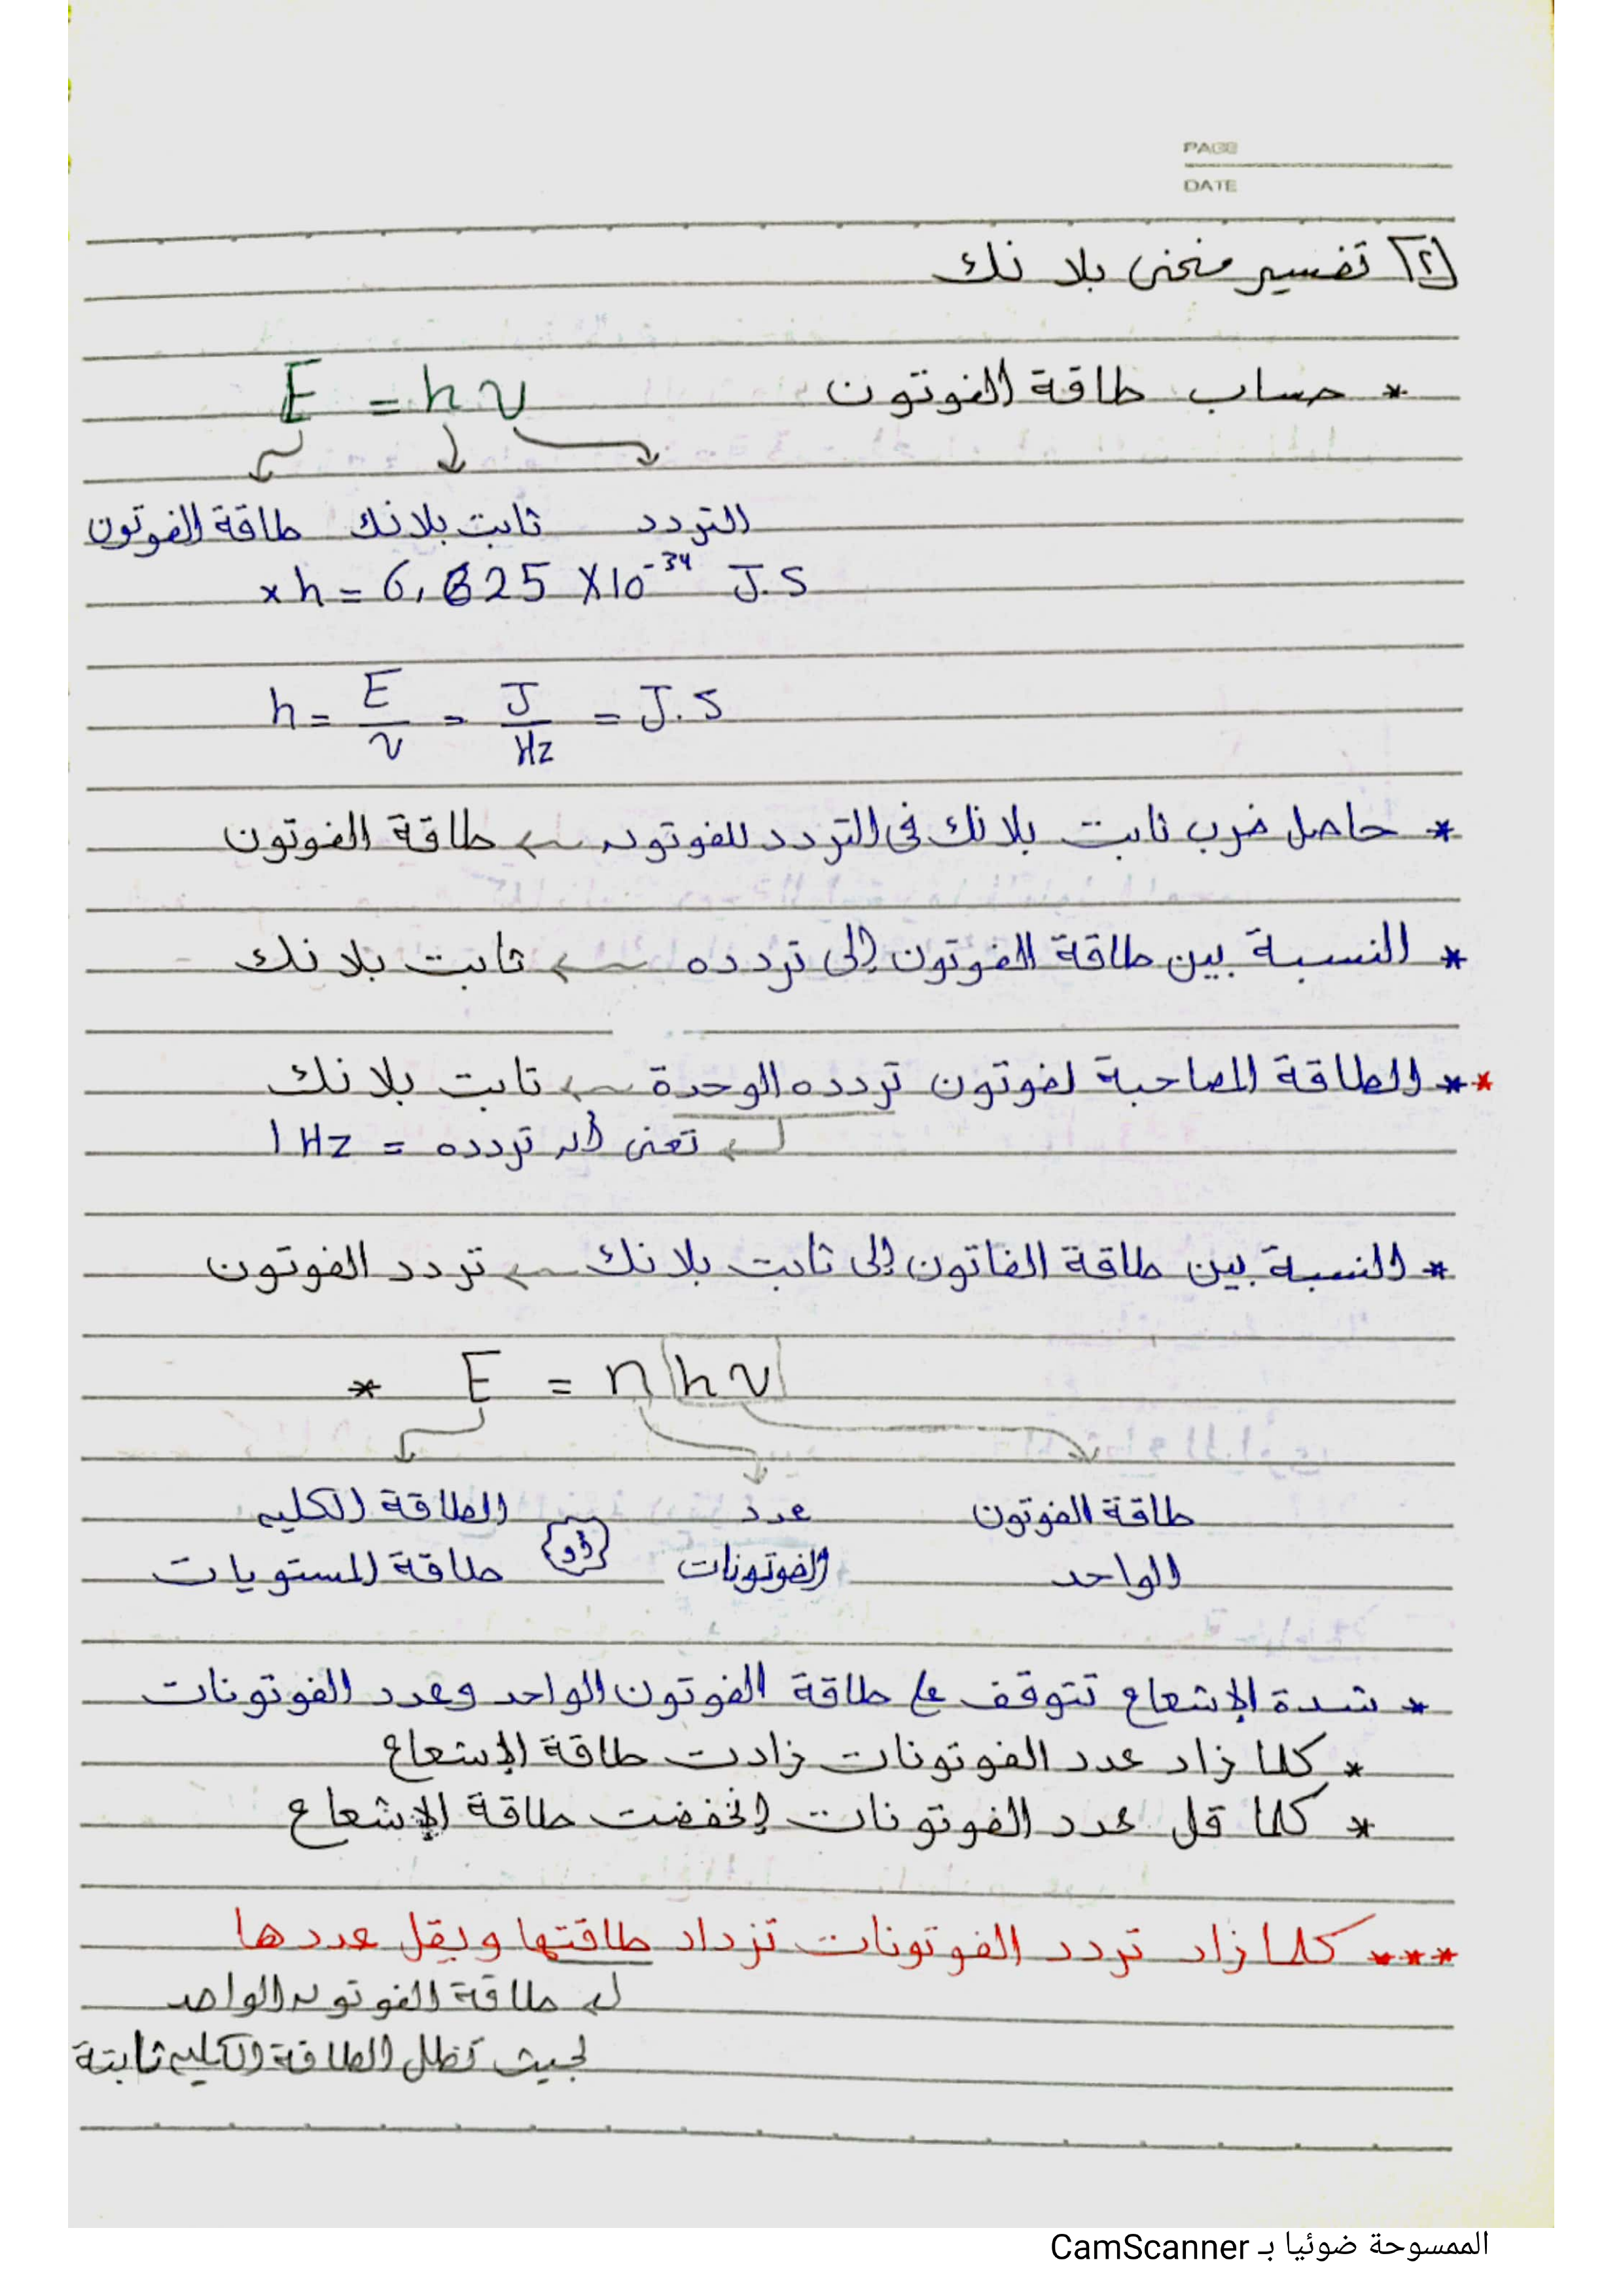 PAGE
DATE
[٢] تفسير منحنى بلانك
* حساب طاقة الفوتون E = hν
التردد ثابت بلانك طاقة الفوتون
× h = 6,625 × 10^-34 J.S
h = E/ν = J/Hz = J.S
* حاصل ضرب ثابت بلانك فى التردد للفوتون ← طاقة الفوتون
* النسبة بين طاقة الفوتون إلى تردده ← ثابت بلانك
** الطاقة المصاحبة لفوتون تردده الوحدة ← ثابت بلانك
← تعنى أن تردده = 1 Hz
* النسبة بين طاقة الفاتون إلى ثابت بلانك ← تردد الفوتون
* E = n hν
طاقة الفوتون عدد الطاقة الكليه
الواحد الفوتونات {أو} طاقة المستويات
* شدة الإشعاع تتوقف على طاقة الفوتون الواحد وعدد الفوتونات
* كلما زاد عدد الفوتونات زادت طاقة الإشعاع
* كلما قل عدد الفوتونات إنخفضت طاقة الإشعاع
*** كلما زاد تردد الفوتونات تزداد طاقتها ويقل عددها
← طاقة الفوتون الواحد
بحيث تظل الطاقة الكليه ثابتة
الممسوحة ضوئيا بـ CamScanner